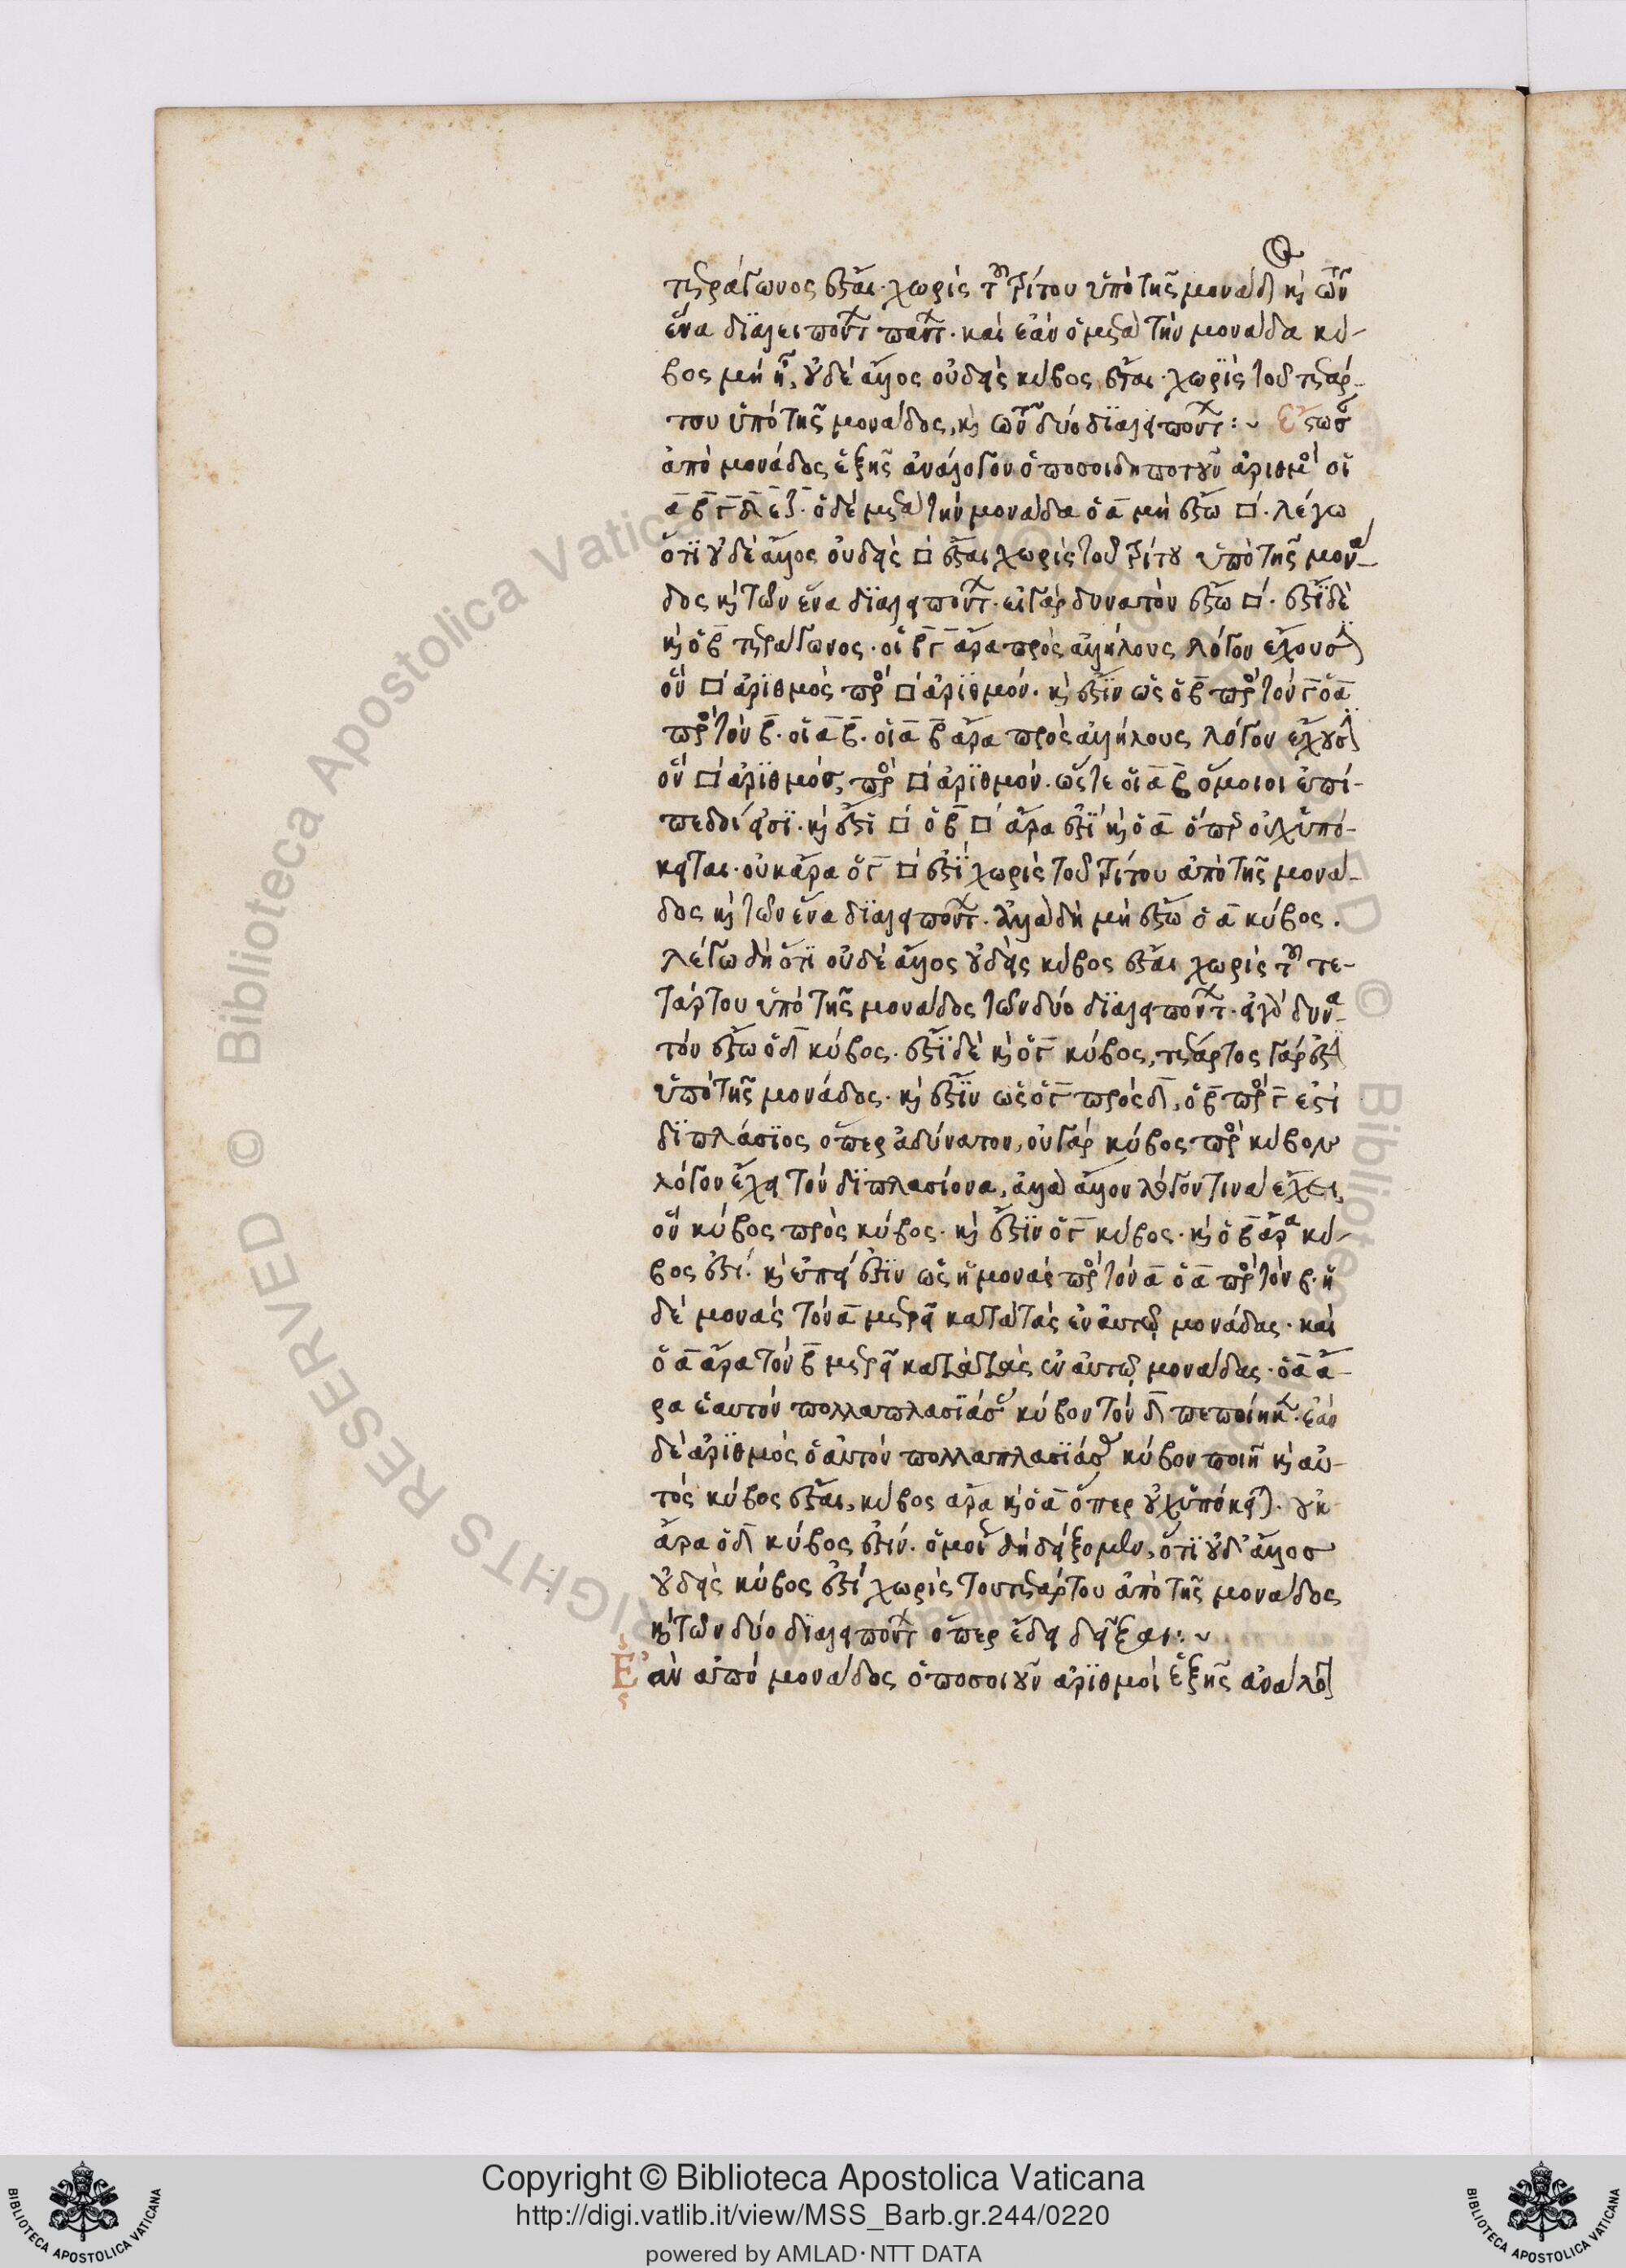 τετράγωνος ἔσται· χωρὶς τοῦ τρίτου ἀπὸ τῆς μονάδος καὶ τῶν
ἕνα διαλειπόντων πάντων· καὶ ἐὰν ὁ μετὰ τὴν μονάδα κύ-
βος μὴ ᾖ, οὐδὲ ἄλλος οὐδεὶς κύβος ἔσται· χωρὶς τοῦ τετάρ-
του ἀπὸ τῆς μονάδος, καὶ τῶν δύο διαλειπόντων :~ Ἔστωσαν
ἀπὸ μονάδος ἑξῆς ἀνάλογον ὁποσοιδηποτοῦν ἀριθμοὶ οἱ
α β γ δ ε ζ· ὁ δὲ μετὰ τὴν μονάδα ὁ α μὴ ἔστω □· λέγω
ὅτι οὐδὲ ἄλλος οὐδεὶς □ ἔσται χωρὶς τοῦ τρίτου ἀπὸ τῆς μονά-
δος καὶ τῶν ἕνα διαλειπόντων· εἰ γὰρ δυνατὸν ἔστω □· ἔστι δὲ
καὶ ὁ β τετράγωνος· οἱ β γ ἄρα πρὸς ἀλλήλους λόγον ἔχουσιν
ὃν □ ἀριθμὸς πρὸς □ ἀριθμόν· καὶ ἔστιν ὡς ὁ β πρὸς τὸν γ ὁ α
πρὸς τὸν β· οἱ α β· οἱ α β ἄρα πρὸς ἀλλήλους λόγον ἔχουσιν
ὃν □ ἀριθμὸς, πρὸς □ ἀριθμόν· ὥστε οἱ α β ὅμοιοι ἐπί-
πεδοί εἰσι· καὶ ἔστι □ ὁ β □ ἄρα ἐστὶ καὶ ὁ α ὅπερ οὐχ ὑπό-
κειται· οὐκ ἄρα ὁ γ □ ἐστὶ χωρὶς τοῦ τρίτου ἀπὸ τῆς μονά-
δος καὶ τῶν ἕνα διαλειπόντων· ἀλλὰ δὴ μὴ ἔστω ὁ α κύβος.
λέγω δὴ ὅτι οὐδὲ ἄλλος οὐδεὶς κύβος ἔσται χωρὶς τοῦ τε-
τάρτου ἀπὸ τῆς μονάδος τῶν δύο διαλειπόντων· εἰ γὰρ δυνα-
τόν ἔστω ὁ δ κύβος· ἔστι δὲ καὶ ὁ γ κύβος, τέταρτος γάρ ἐστιν
ἀπὸ τῆς μονάδος· καὶ ἔστιν ὡς ὁ γ πρὸς δ, ὁ β πρὸς γ ἐστὶ
διπλάσιος ὅπερ ἀδύνατον, οὐ γὰρ κύβος πρὸς κύβον
λόγον ἔχει τὸν διπλασίονα, ἀλλὰ ἄλλον λόγον τινὰ ἔχει,
ὃν κύβος πρὸς κύβος· καὶ ἔστιν ὁ γ κύβος· καὶ ὁ β ἄρα κύ-
βος ἐστί· καὶ ἐπεί ἐστιν ὡς ἡ μονὰς πρὸς τὸν α ὁ α πρὸς τὸν β· ἡ
δὲ μονὰς τὸν α μετρεῖ κατὰ τὰς ἐν αὐτῷ μονάδας· καὶ
ὁ α ἄρα τὸν β μετρεῖ κατὰ τὰς ἐν αὐτῷ μονάδας· ὁ α ἄ-
ρα ἑαυτὸν πολλαπλασιάσας κύβον τὸν δ πεποίηκεν· ἐὰν
δὲ ἀριθμὸς ὁ αὐτὸν πολλαπλασιάσας κύβον ποιῇ καὶ αὐ-
τὸς κύβος ἔσται, κύβος ἄρα καὶ ὁ α ὅπερ οὐχ ὑπόκειται· οὐκ
ἄρα ὁ δ κύβος ἐστίν· ὁμοίως δὴ δείξομεν, ὅτι οὐδ' ἄλλος
οὐδεὶς κύβος ἐστὶ χωρὶς τοῦ τετάρτου ἀπὸ τῆς μονάδος
καὶ τῶν δύο διαλειπόντων ὅπερ ἔδει δεῖξαι :~
Ἐὰν ἀπὸ μονάδος ὁποσοιοῦν ἀριθμοὶ ἑξῆς ἀνάλογον
Copyright © Biblioteca Apostolica Vaticana
http://digi.vatlib.it/view/MSS_Barb.gr.244/0220
powered by AMLAD·NTT DATA